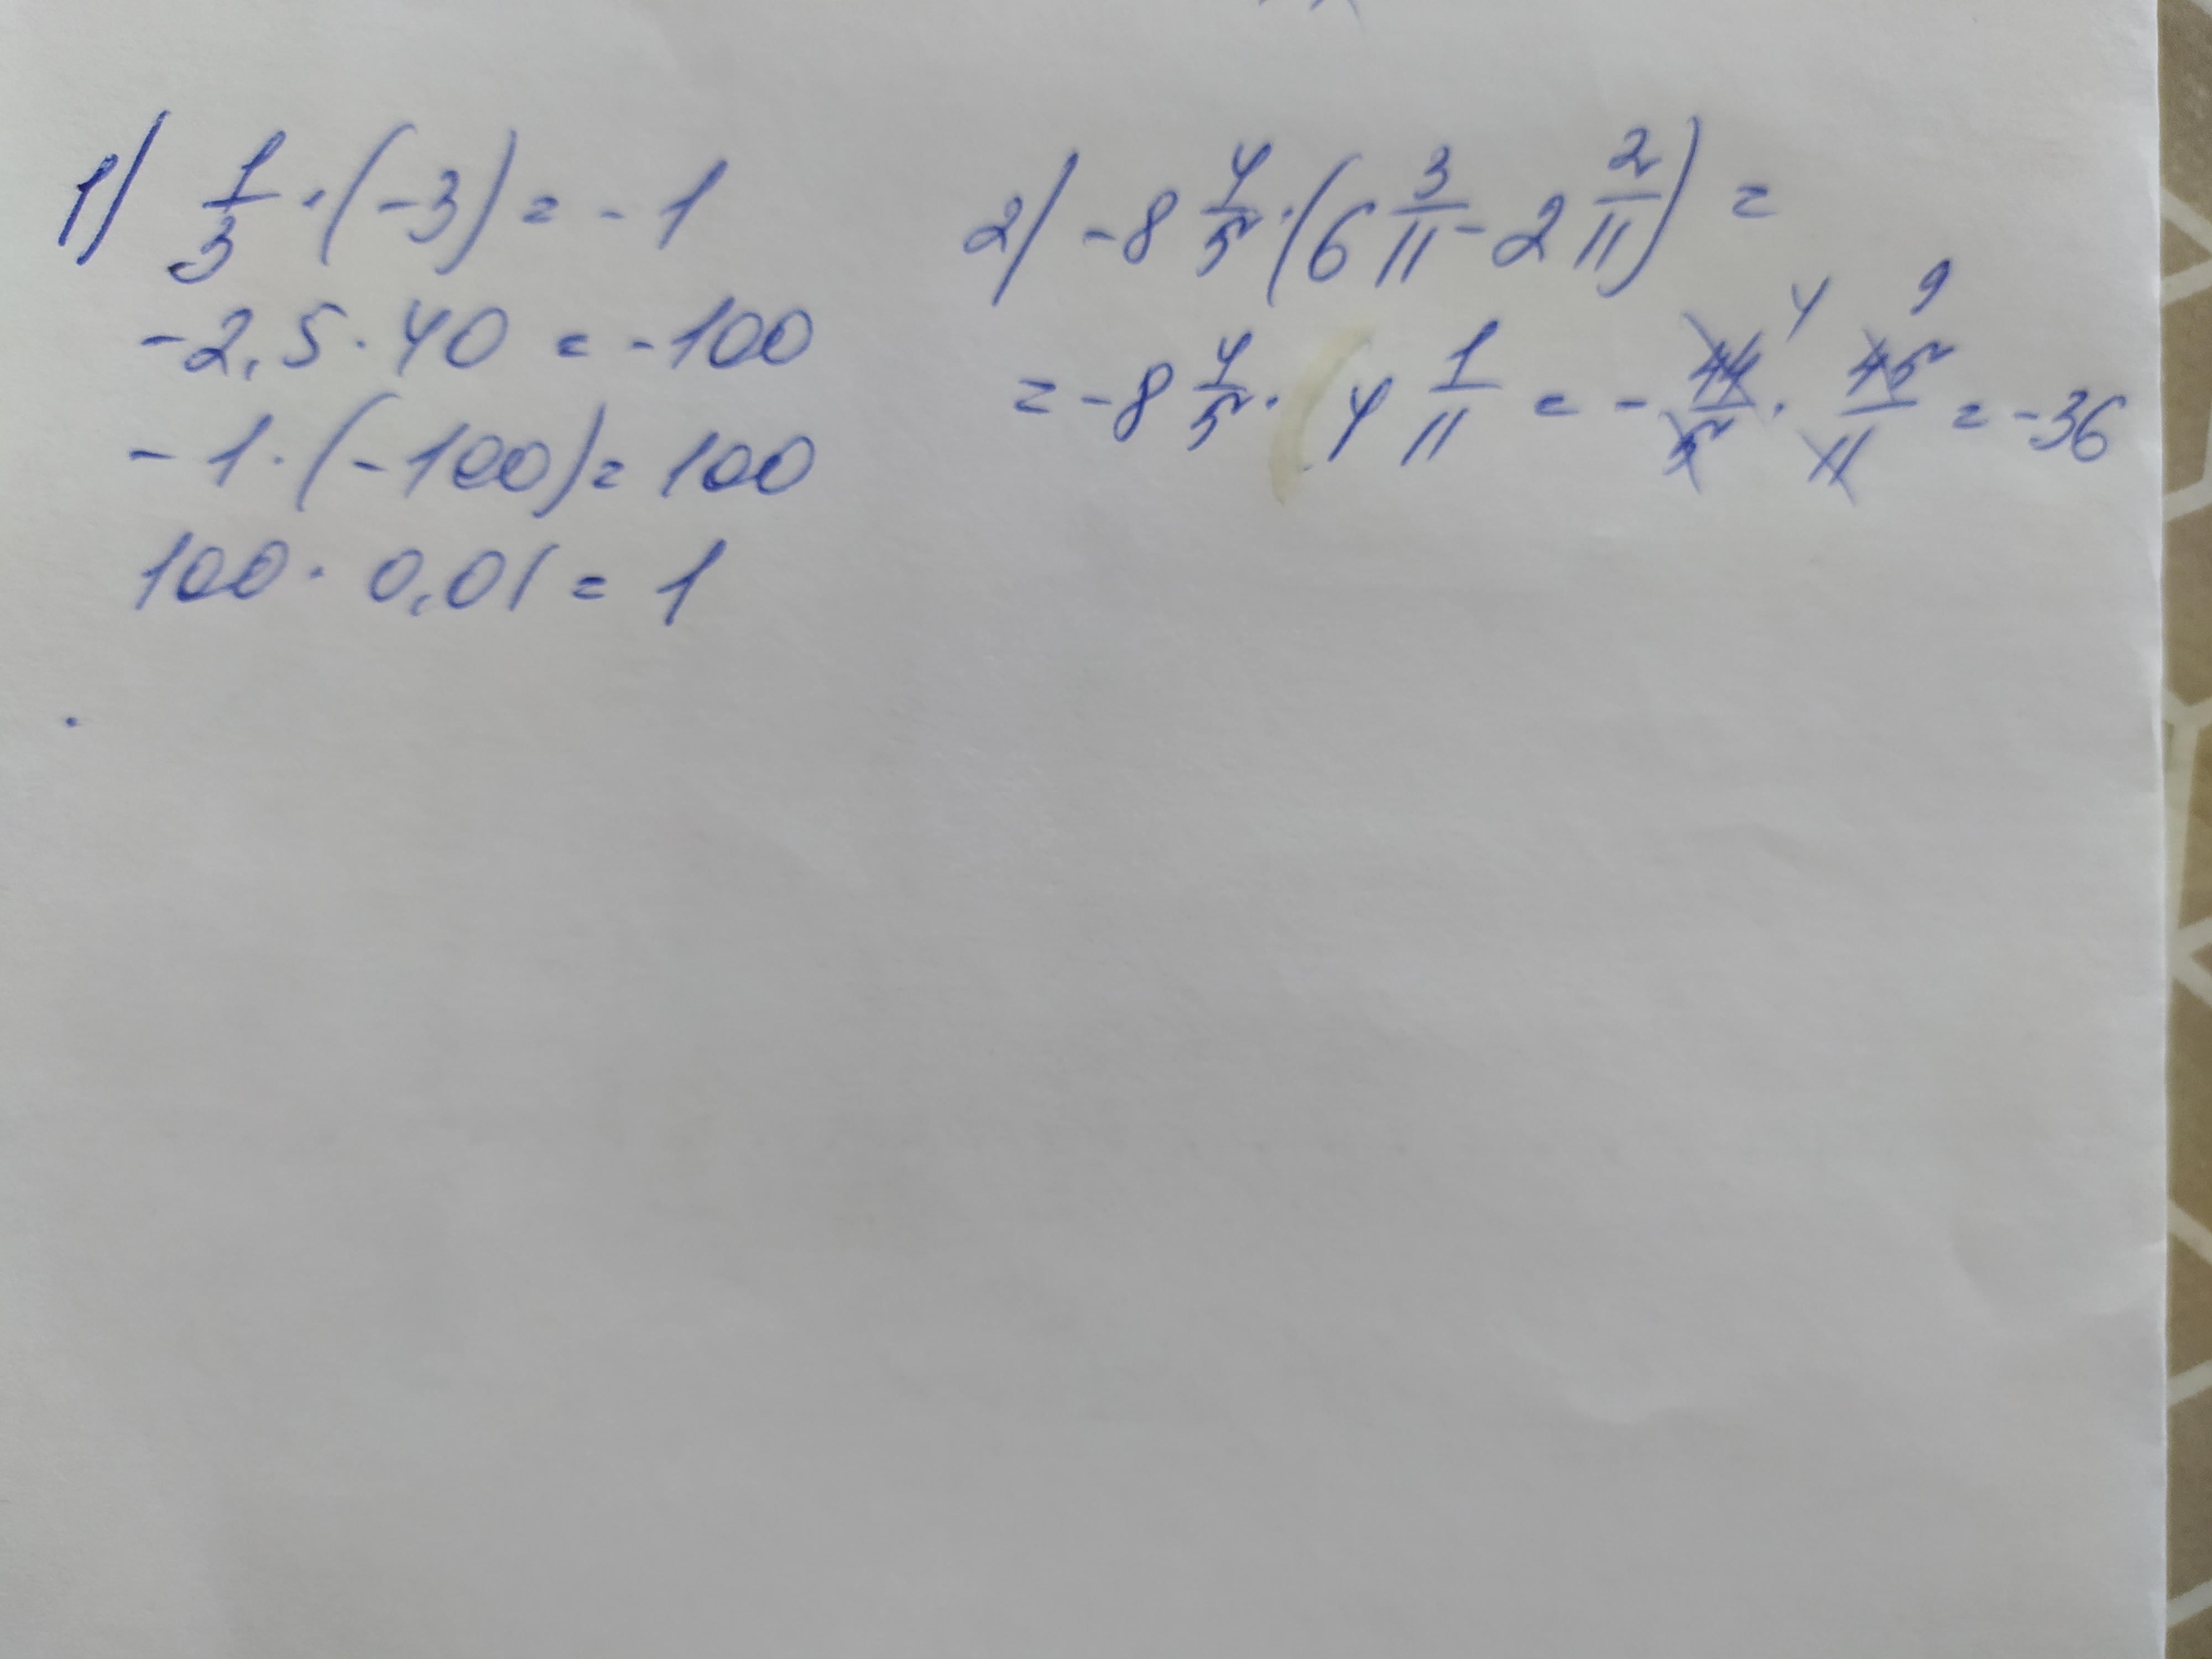 1) 1/3 · (-3) = -1
-2,5 · 40 = -100
-1 · (-100) = 100
100 · 0,01 = 1
2) -8 4/5 · (6 3/11 - 2 2/11) =
= -8 4/5 · 4 1/11 = - 44/5 4 · 45/11 9 = -36